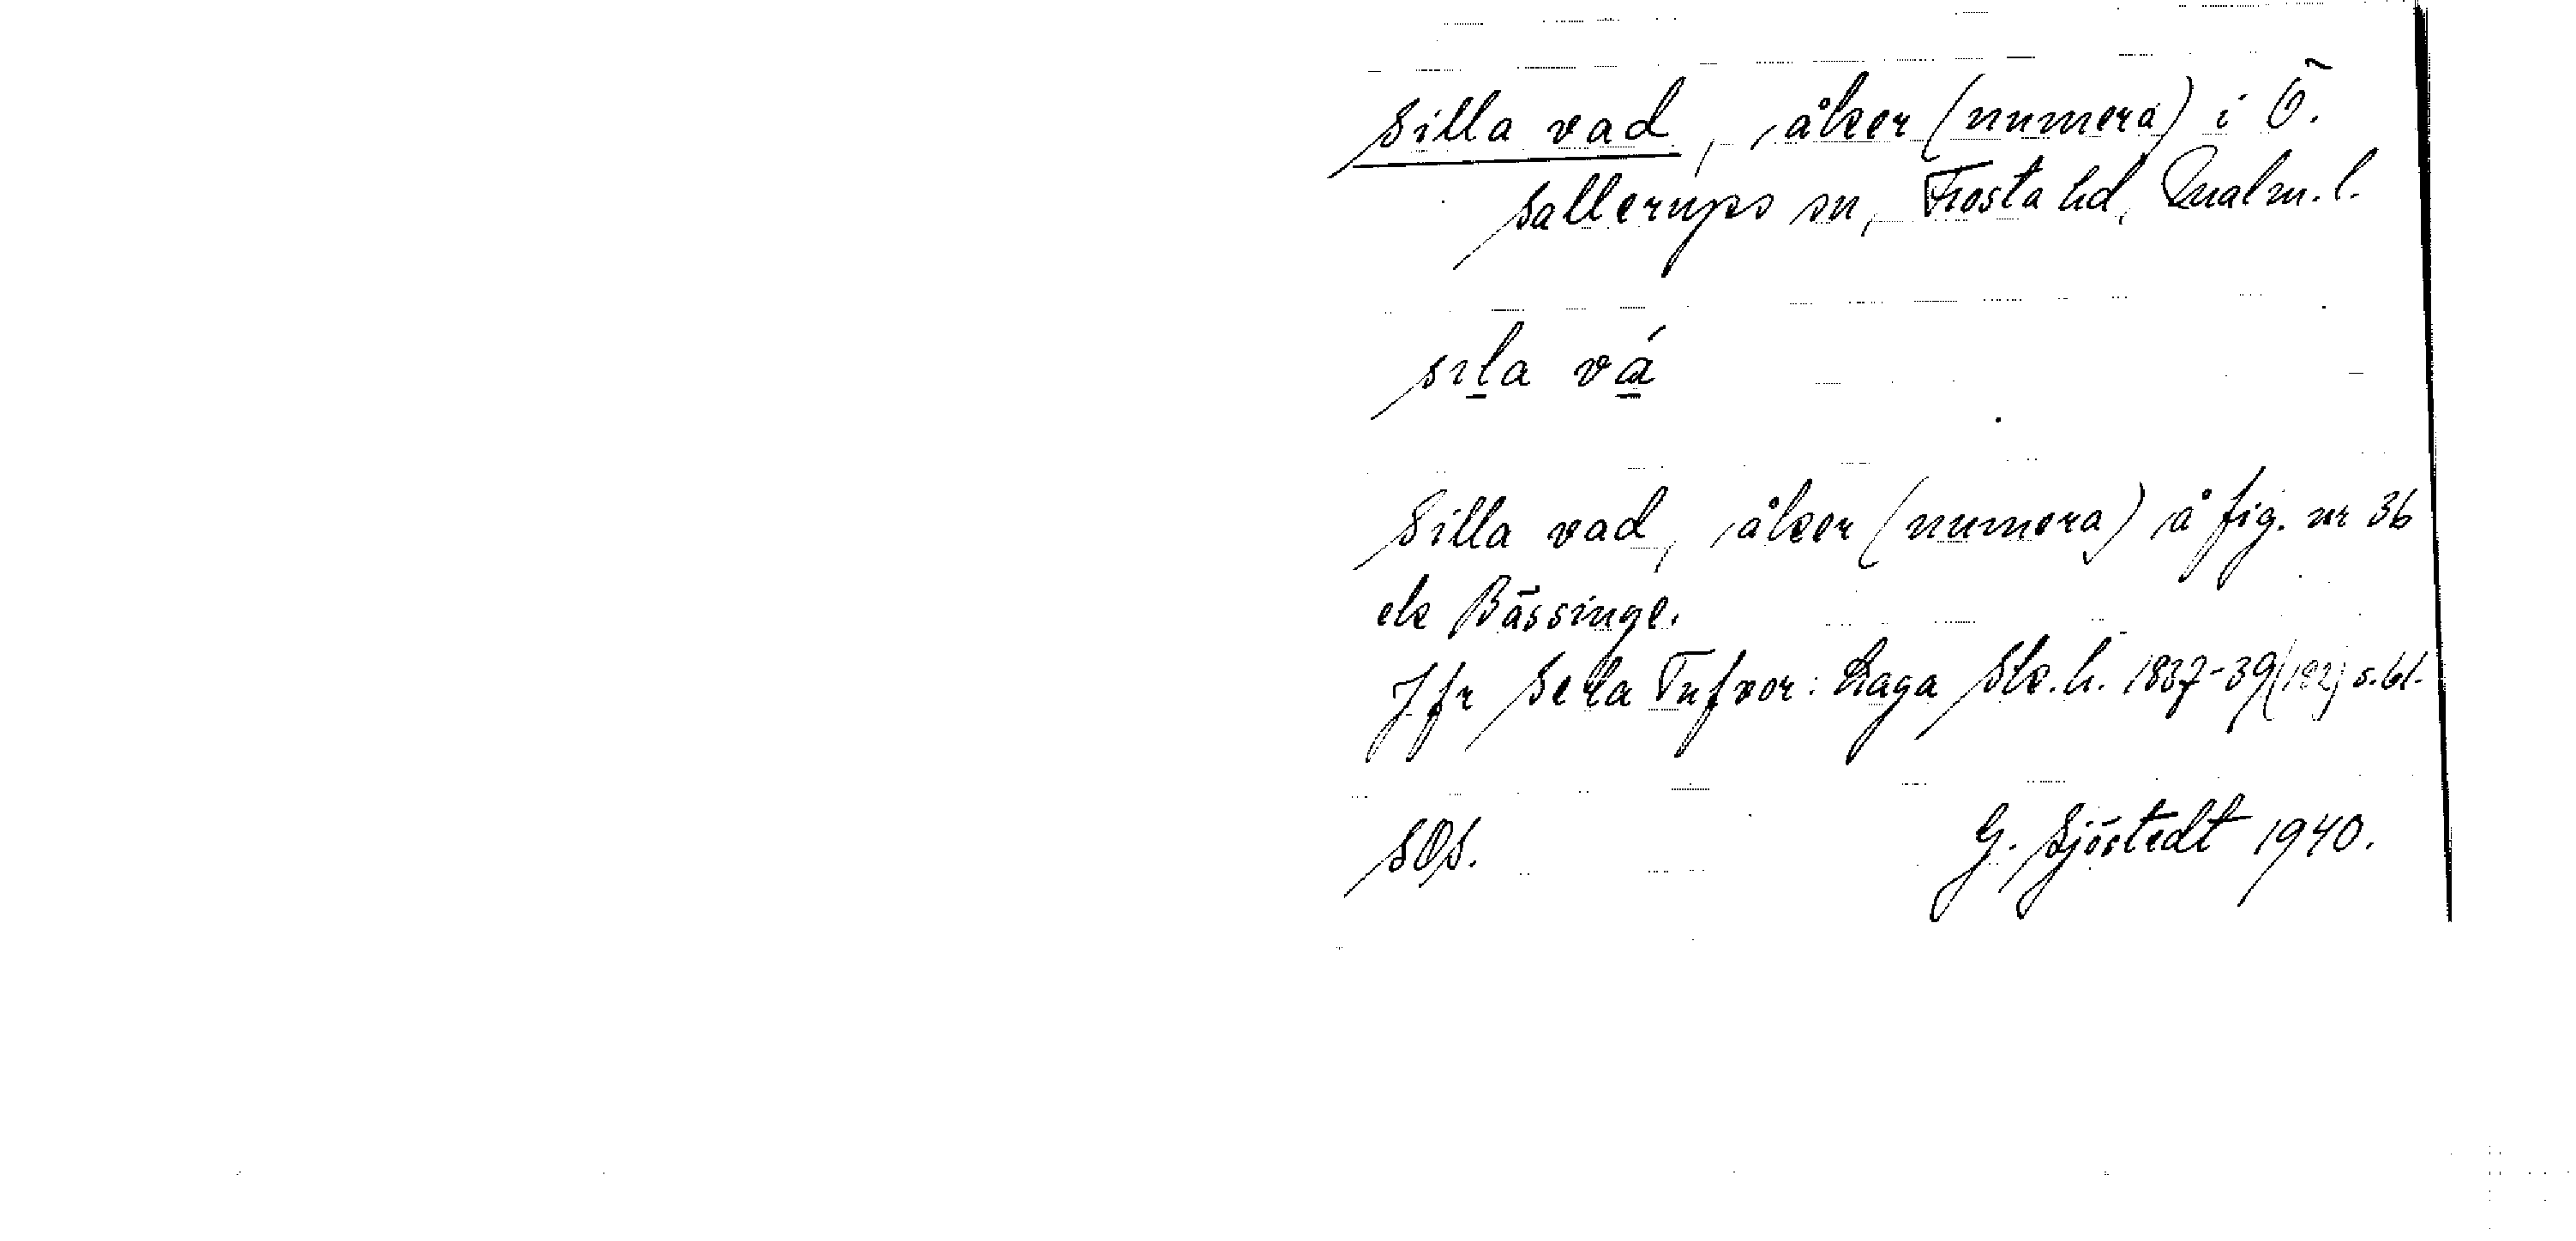 Silla vad, åker (numera) i Ö.
Sallerups sn, Frosta hd, Malm. l.
sıla vá
Silla vad, åker (numera) å fig. nr 36
ek Bässinge.
Jfr Serla Tufvor: Laga Sk. h. 1837-39 (182) s. 61.
SOS. G. Sjöstedt 1940.